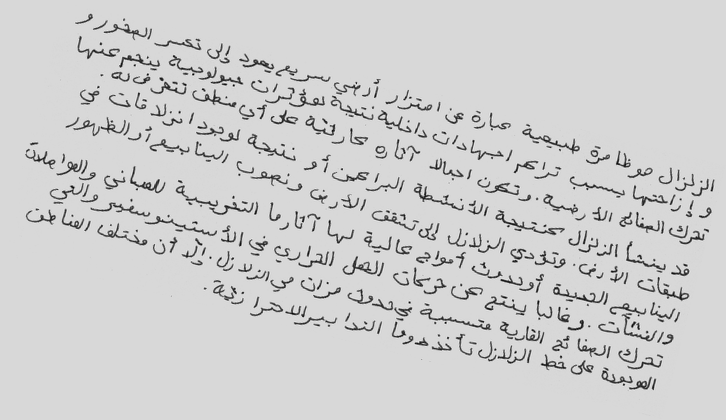 الزلزال هو ظاهرة طبيعية عبارة عن اهتزاز أرضي سريع يعود إلى تكسر الصخور و
و إزاحتها بسبب تراكم اجهادات داخلية نتيجة لمؤثرات جيولوجية ينجم عنها
تحرك الصفائح الأرضية. وتكون اجمالا آثاره كارثية على أي منطقة تتعرض له.
قد ينشأ الزلزال كنتيجة الأنشطة البراكين أو نتيجة لوجود انزلاقات في
طبقات الأرض. وتؤدي الزلازل إلى تشقق الأرض ونضوب الينابيع أو الظهور
الينابيع الجديدة أو حدوث أمواج عالية لها آثارها التخريبية للمباني والمواصلات
والمنشآت. و غالبا ينتج عن حركات الحمل الحراري في الأستينوسفير والتي
تحرك الصفائح القارية متسببة في حدوث هزات هي الزلازل. إلا أن مختلف المناطق
الموجودة على خط الزلازل تأخذ دوما التدابير الاحترازية.